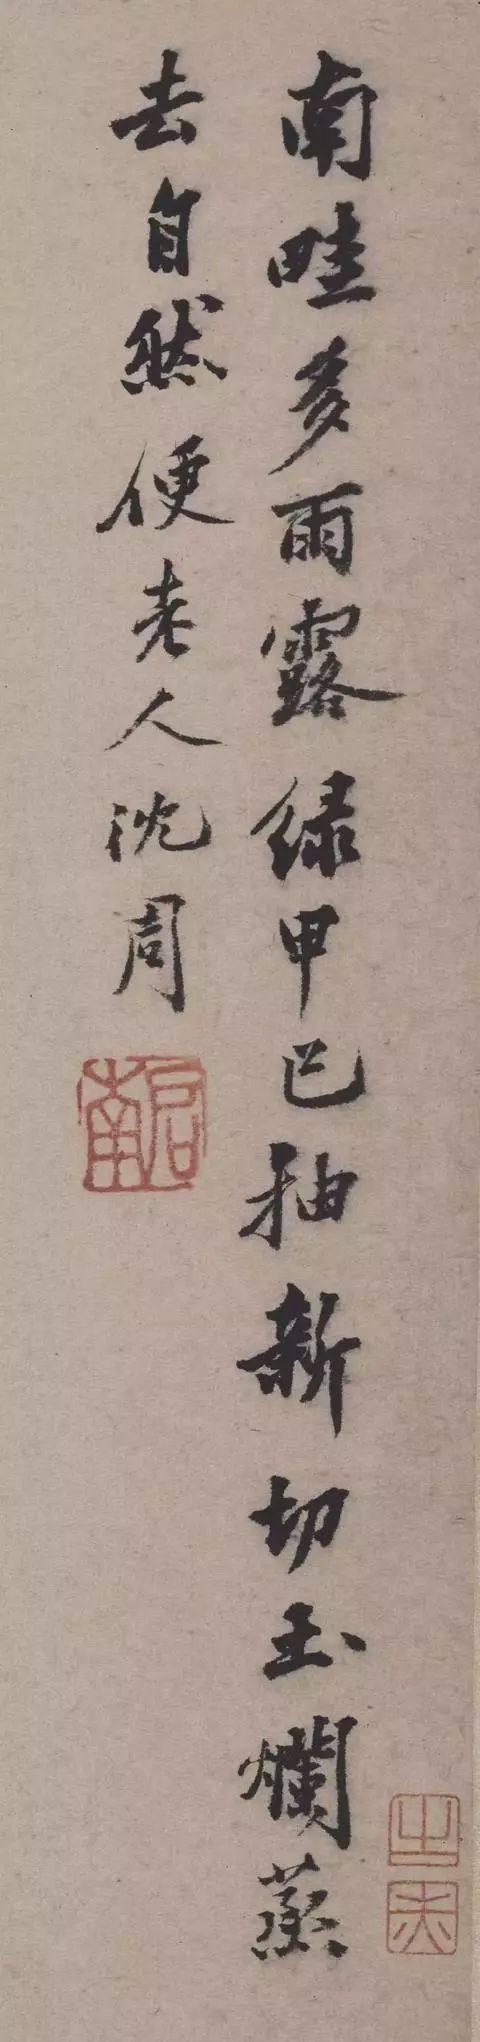 南畦多雨露緑甲已抽新切玉爛蒸
去自然便老人沈周
啓南